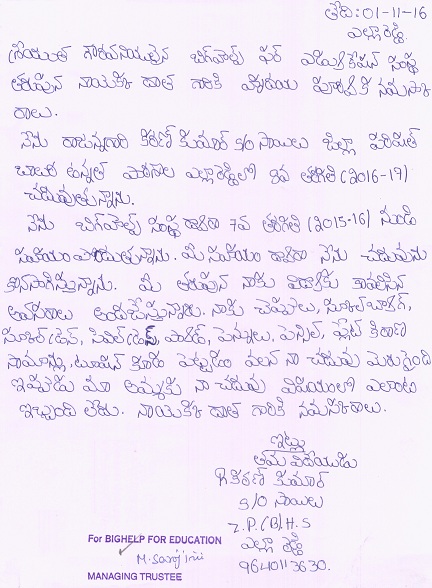 తేది: 01-11-16
ఎల్లారెడ్డి.
గౌరవనీయులైన బిగ్‌హెల్ప్ ఫర్ ఎడ్యుకేషన్ సంస్థ
తరుపున నాయొక్క దాత గారికి హృదయ పూర్వక నమస్కా
రాలు.
నేను రాజన్నగారి కిరణ్ కుమార్ S/O సాయిలు జిల్లా పరిషత్
బాలుర ఉన్నత పాఠశాల ఎల్లారెడ్డిలో 8వ తరగతి (2016-17)
చదువుతున్నాను.
నేను బిగ్‌హెల్ప్ సంస్థ ద్వారా 7వ తరగతి (2015-16) నుండి
సహాయం పొందుతున్నాను. మీ సహాయం ద్వారా నేను చదువును
కొనసాగిస్తున్నాను. మీ తరుపున నాకు విద్యకు కావలసిన
అవసరాలు అందిస్తున్నారు. నాకు చెప్పులు, స్కూల్ బ్యాగ్,
స్కూల్ డ్రెస్, సివిల్ డ్రెస్, ప్యాడ్, పెన్నులు, పెన్సిల్, ప్లేట్ కిరాణ
సామాన్లు, ట్యూషన్ కూడా పెట్టడం వలన నా చదువు మెరుగైంది
ఇప్పుడు మా అమ్మకు నా చదువు విషయంలో ఎలాంటి
ఇబ్బంది లేదు. నాయొక్క దాత గారికి నమస్కారాలు.
ఇట్లు
తమ విధేయుడు
R కిరణ్ కుమార్
S/O సాయిలు
Z.P.(B).H.S
ఎల్లా రెడ్డి
9640113630.
For BIGHELP FOR EDUCATION
M. Sarojini
MANAGING TRUSTEE